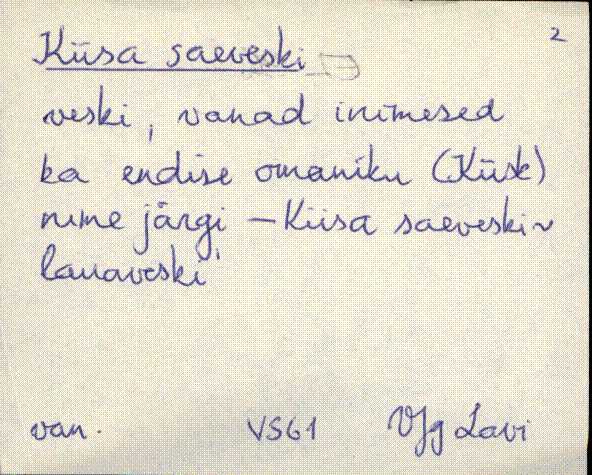 2
Kiisa saeveski
veski, vanad inimesed
ka endise omaniku (Kiisk)
nime järgi – Kiisa saeveski ~
lauaveski
van. VS61 Vjg Lavi